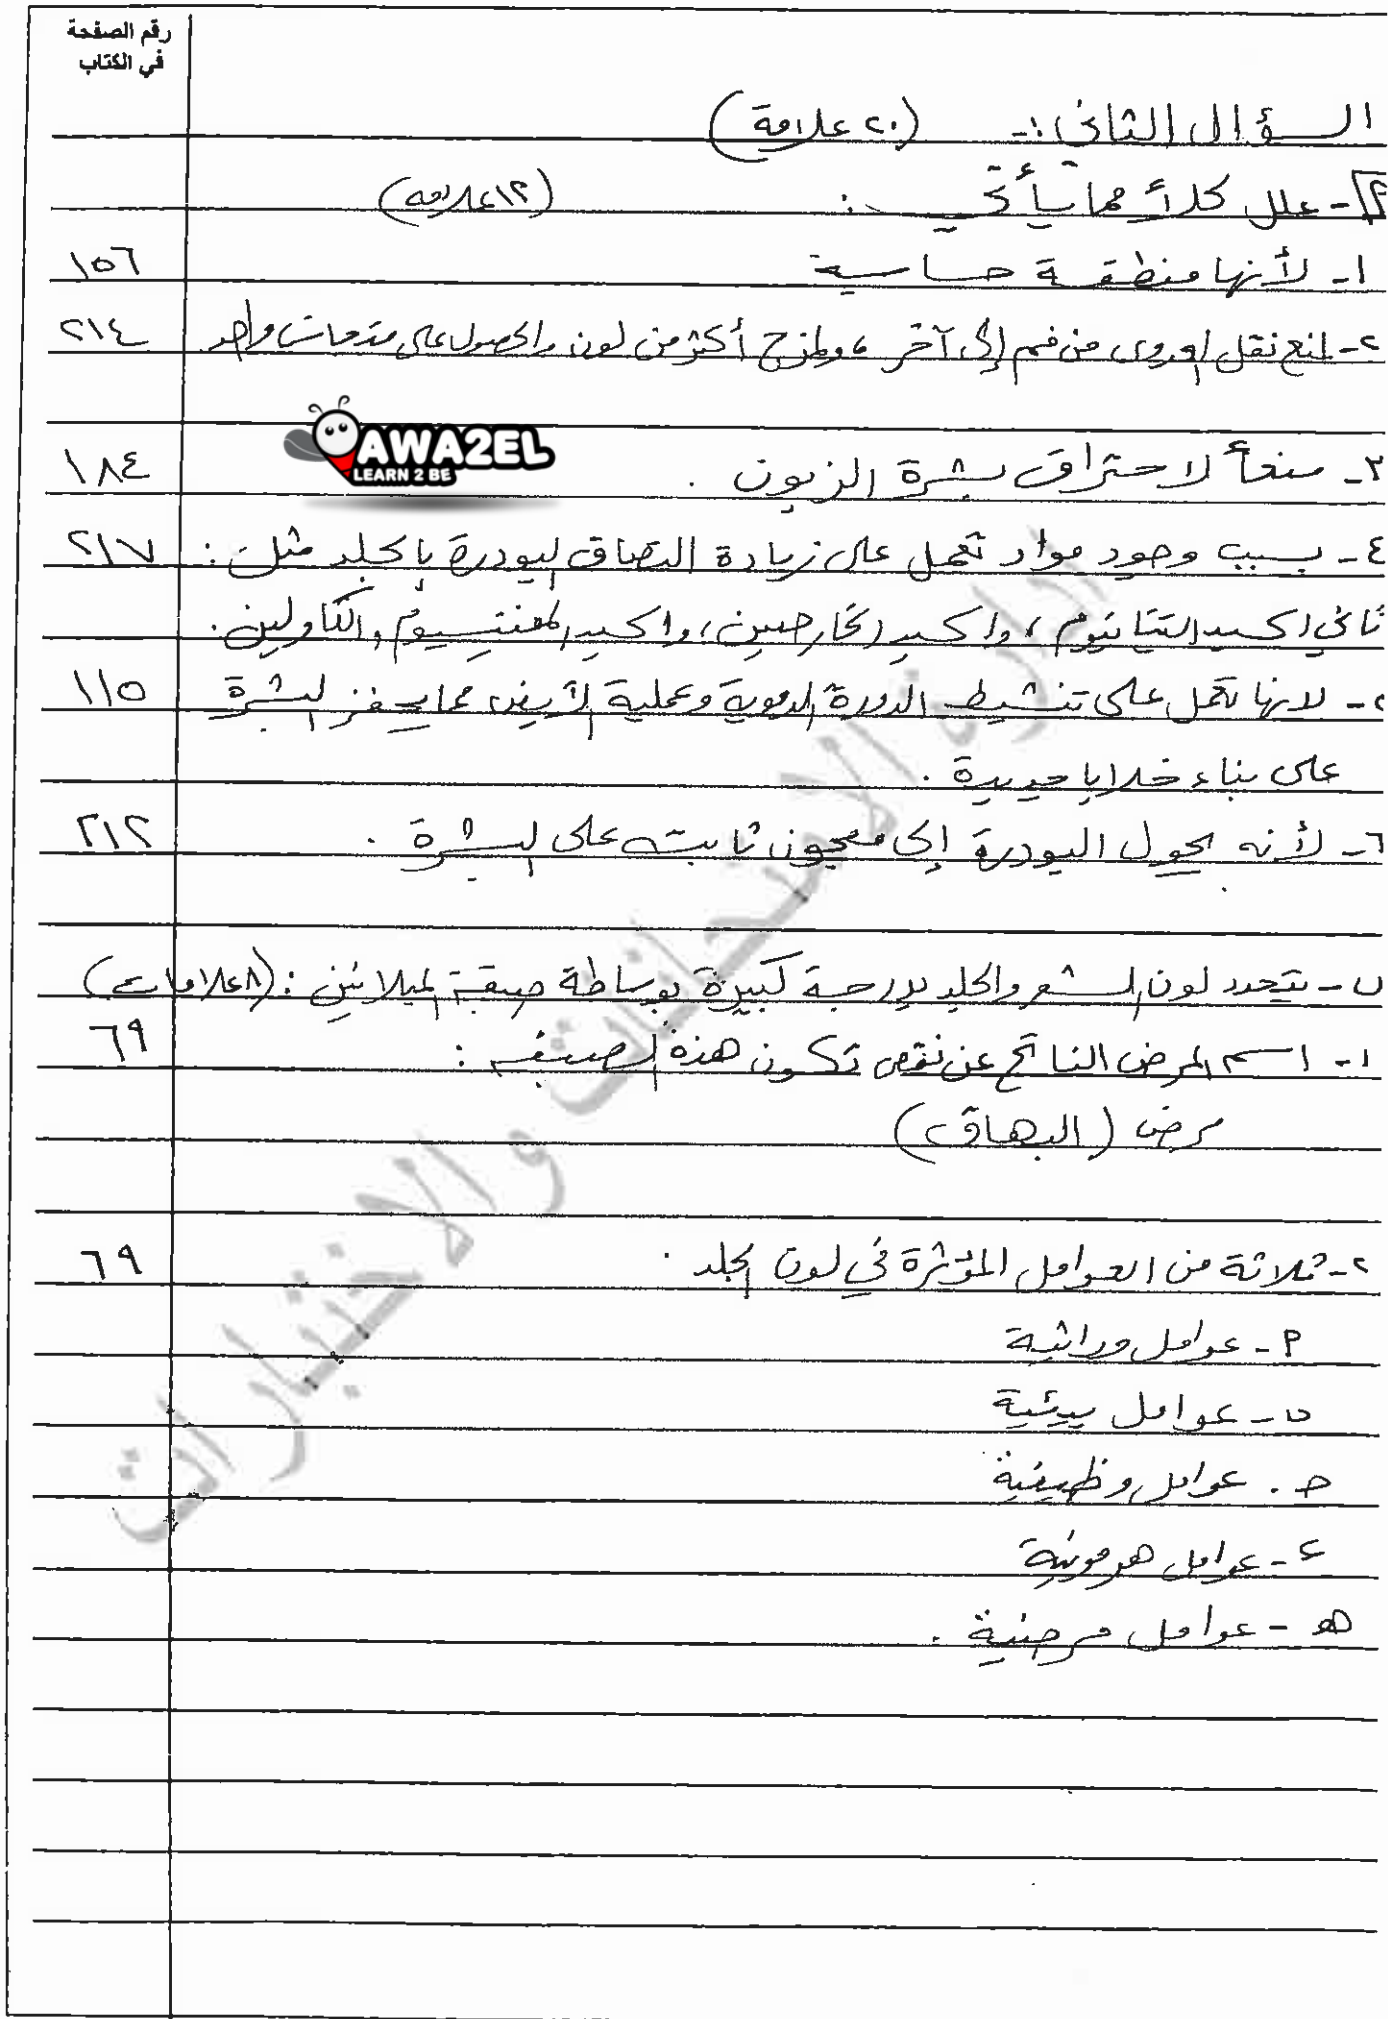 رقم الصفحة
في الكتاب
السؤال الثاني :- (٢٠ علامة)
أ- علل كلاً مما يأتي : (١٢ علامة)
١- لأنها منطقة حساسة ١٥٦
٢- لمنع نقل العدوى من فم إلى آخر ، ولمزج أكثر من لون والحصول على واحد ٢١٤
AWA2EL
LEARN 2 BE
٣- منعاً لاحتراق بشرة الزبون . ١٨٤
٤- بسبب وجود مواد تعمل على زيادة التصاق البودرة بالجلد مثل : ٢١٧
ثاني اكسيد التيتانيوم ، واكسيد الخارصين ، واكسيد المغنيسيوم ، والكاولين .
٥- لانها تعمل على تنشيط الدورة الدموية وعملية الأيض مما يحفز البشرة ١١٥
على بناء خلايا جديدة .
٦- لأنه يحول البودرة إلى معجون ثابت على البشرة . ٢١٢
ب- يتحدد لون الشعر والجلد بدرجة كبيرة بوساطة صبغة الميلانين : (٨ علامات)
١- اسم المرض الناتج عن نقص تكون هذه الصبغة : ٦٩
مرض (البهاق)
٢- ثلاثة من العوامل المؤثرة في لون الجلد . ٦٩
أ- عوامل وراثية
ب- عوامل بيئية
جـ. عوامل وظيفية
د- عوامل هرمونية
هـ - عوامل مرضية .
إدارة الامتحانات والاختبارات